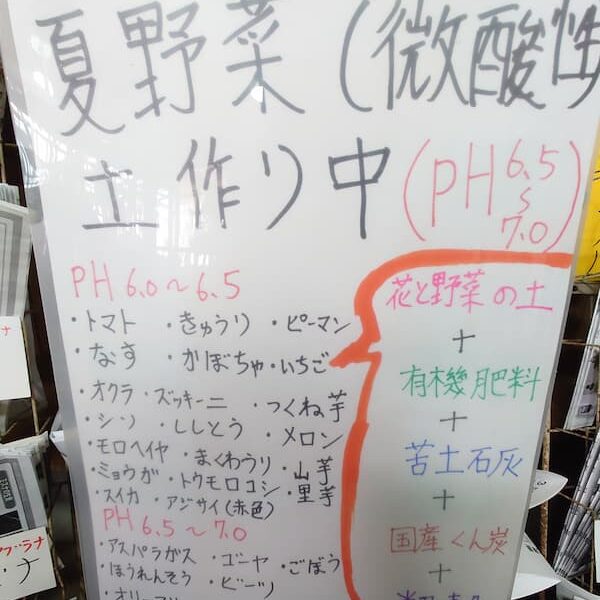 夏野菜(微酸性
土作り中(PH 6.5〜7.0)
PH 6.0〜6.5
・トマト ・きゅうり ・ピーマン
・なす ・かぼちゃ ・いちご
・オクラ ・ズッキーニ ・つくね芋
・シソ ・ししとう ・メロン
・モロヘイヤ ・まくわうり ・山芋
・ミョウガ ・トウモロコシ ・里芋
・スイカ ・アジサイ(赤色)
PH 6.5〜7.0
・アスパラガス ・ゴーヤ ・ごぼう
・ほうれんそう ・ビーツ
花と野菜の土
+
有機肥料
+
苦土石灰
+
国産くん炭
+